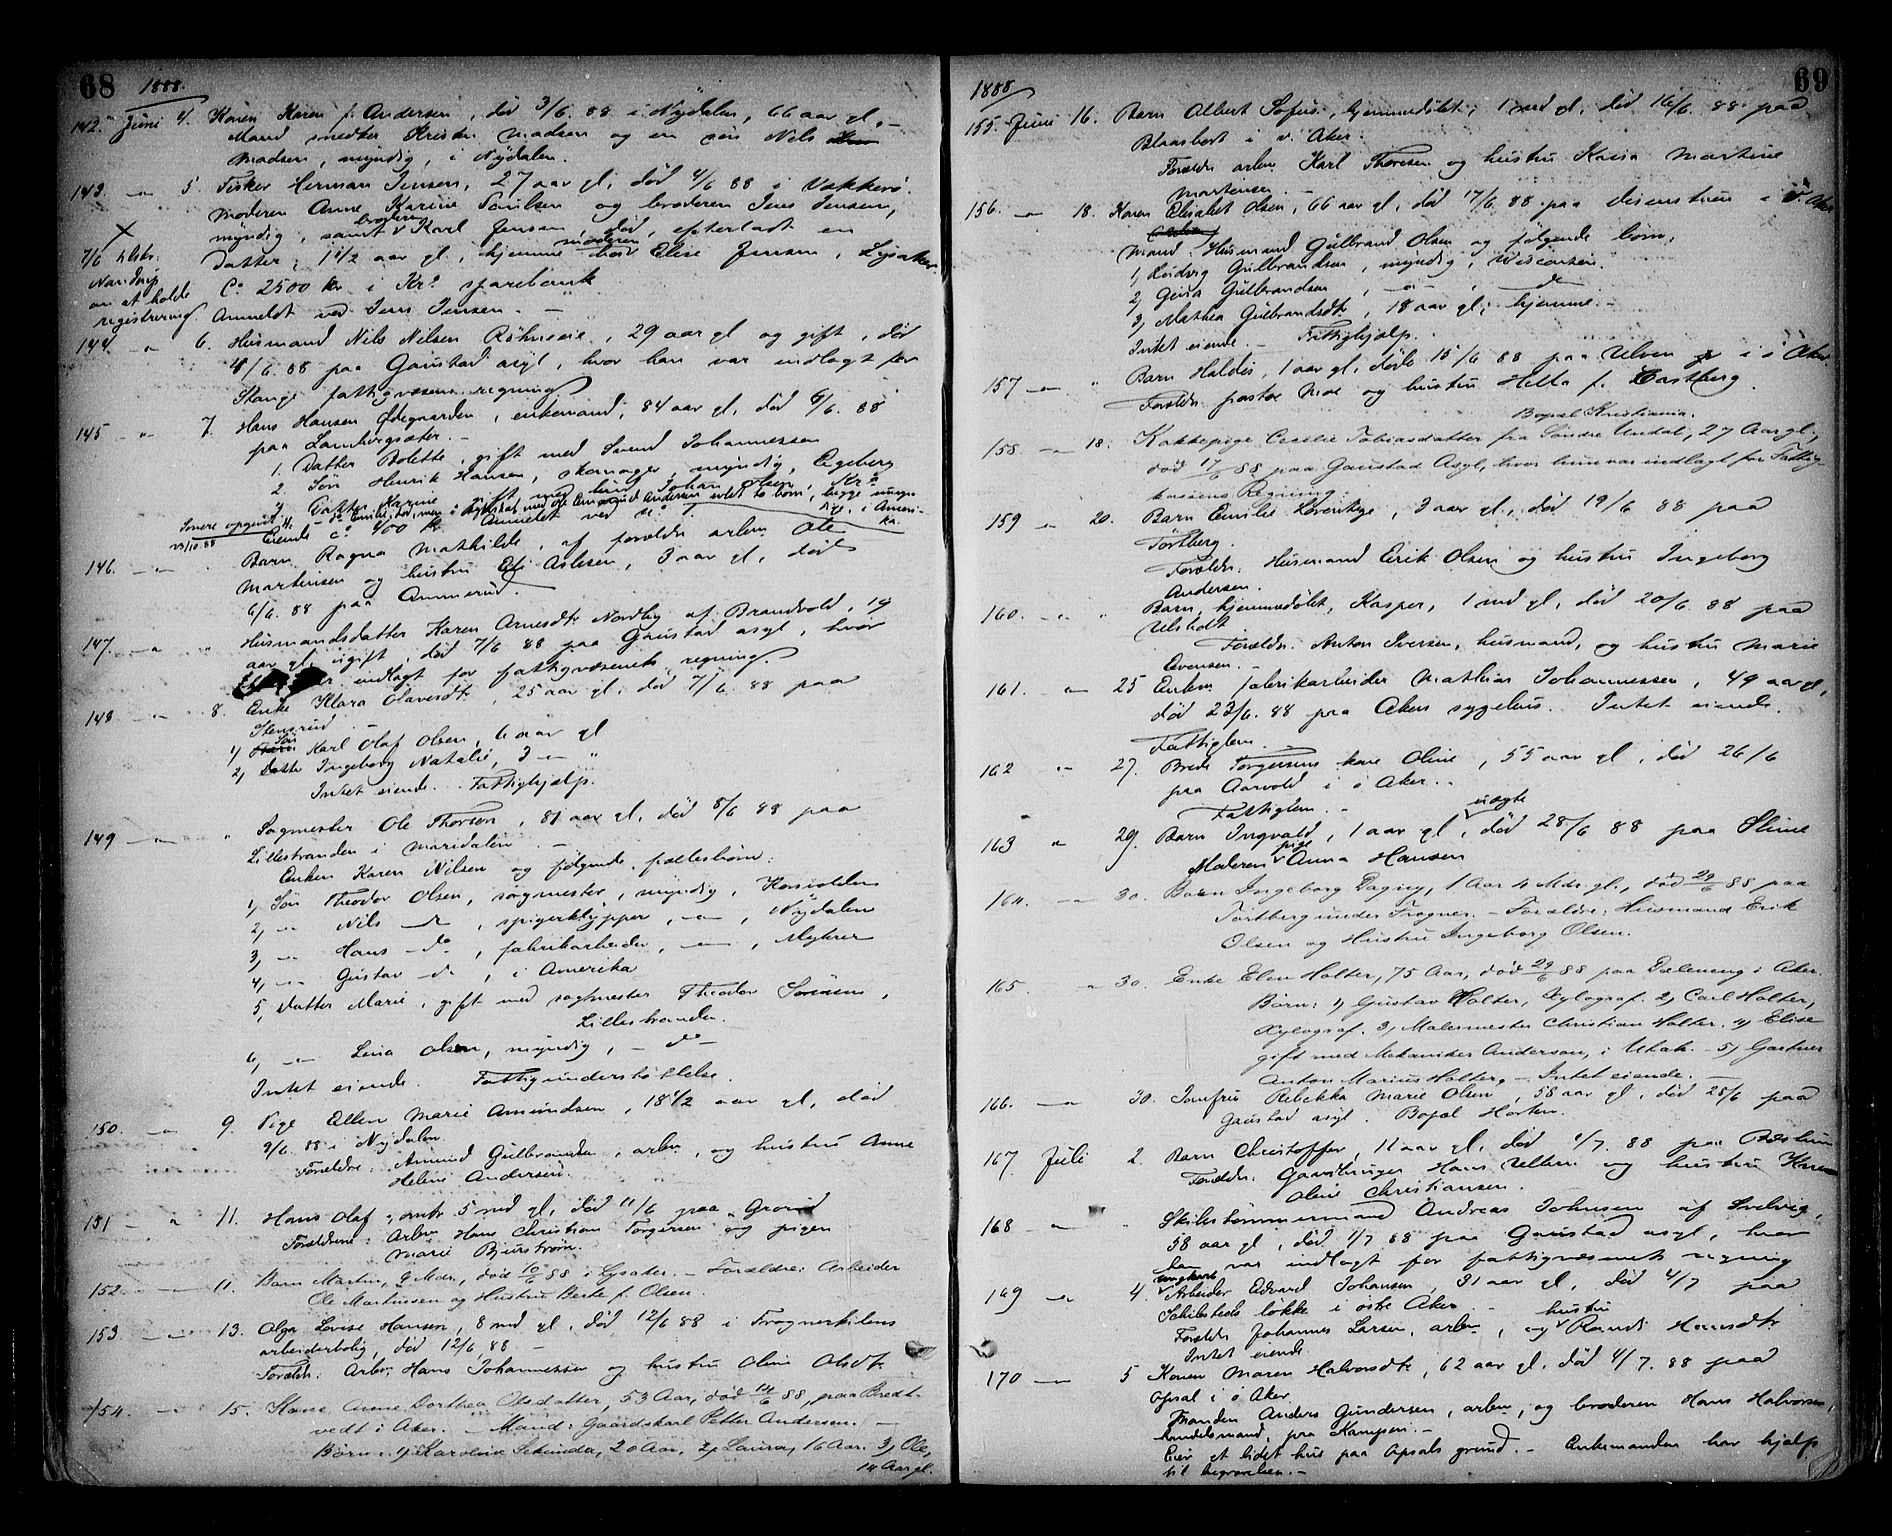 68 1888.
142. Juni 4. Konen Karen f. Andersen, død 3/6. 88 i Nydalen, 66 aar gl. –
Mand smedker Kristen Madsen og en søn Nils
Madsen, myndig, i Nydalen.
143. – 5. Fisker Herman Jensen, 27 aar gl, død 4/6 88 i Vækkerø.
Moderen Anne Karine Paulsen og broderen Jens Jensen,
myndig, samt broderen Karl Jensen, død, efterladt en
Datter, 11/2 aar gl, hjemme hos moderen Elise Jensen, Lysaker
Co 2500 kr i Kra sparebank
Anmeldt ved Jens Jensen. –
7/6
om at holde
registrering
144. " 6. Husmand Nils Nilsen Røhneeie, 29 aar gl og gift, død
4/6. 88 paa Gaustad asyl, hvor han var indlagt for
Stange fattigvæsens regning
145 " 7. Hans Hansen Ødegaarden, enkemand, 84 aar gl, død 6/6. 88
paa Lambergsæter. –
1. Datter Bolette, gift med Svend Johannessen
2. Søn Henrik Hansen, skomager, myndig, Egeberg
3 Datter Karine, gift med Johan Olsen Kra
Senere opgivet: 4. – do Emilie, død, men i ægteskab med Ole Andersen avlet to børn, begge i Amerika.
23/10.88 Eiende co 400 kr. Anmeldt ved No 1.
146. – " Barn Ragna Mathilde, af forældre arbm. Ole
Martinsen og hustru Eli Aslesen, 3 aar gl, død
6/6. 88 paa Ammerud.
147. " " Husmandsdatter Karen Arnesdtr Nordby af Brandvold, 19
aar gl, ugift, død 7/6 88 paa Gaustad asyl, hvor
indlagt for fattigvæsenets regning.
148 – 8. Enke Klara Olavesdtr, 25 aar gl, død 7/6. 88 paa
Stensrud.
1) Søn Karl Olaf Olsen, 6 aar gl
2) Datter Ingeborg Natalie, 3 – "
Intet eiende. Fattighjælp.
149 – " Sagmester Ole Thorsen, 81 aar gl, død 8/6 88 paa
Lillestranden i Maridalen. –
Enken Karen Nilsen og følgende fællesbørn:
1, Søn Theodor Olsen, sagmester, myndig,
2, – Nils do, spigerklypper, –, Nydalen
3, – Hans – do, fabrikarbeider, –, Myhrer
4, – Gustav – do, i Amerika
5, Datter Marie, gift med sagmester Theodor Sørensen,
Lillestranden.
6, – Lina Olsen, myndig, – do –
Intet eiende. Fattigunderstøttelse.
150. – 9. Pige Ellen Marie Amundsen, 18 1/2 aar gl, død
9/6. 88 i Nydalen.
Forældre: Amund Gulbrandsen, arbm, og hustru Anne
Helene Andersen.
151 – 11. Hans Olaf, omtr 5 md gl, død 11/6 paa Grorud
Forældrene: Arbm Hans Christian Torgersen og pigen
Marie Bjurstrøm.
152. – 11. Barn Martin, 9 Mdr., død 10/6 88 i Lysaker. – Forældre: Arbeider
Ole Martinsen og Hustru Berte f. Olsen.
153 – 13. Olga Lovise Hansen, 8 md gl, død 12/6 88 i Frognerkilens
arbeiderbolig, død 12/6 88 –
Forældr: Arbr. Hans Johannessen og hustru Oline Olsdtr.
154. – 15. Kone Anne Dorthea Olsdatter, 53 Aar, død 14/6 88, paa Bredt-
vedt i Aker. – Mand: Gaardskarl Petter Andersen. –
Børn: 1, Karoline Sekunda, 20 Aar, 2, Laura, 16 Aar. 3, Ole,
14 Aar gl.
1888 69
155 Juni 16. Barn Albert Sofus, hjemmedøbt, 1 md gl, død 16/6. 88 paa
i v. Aker.
Forældr. arbm Karl Thoresen og hustru Kaisa Martine
Martensen. –
156. – 18. Konen Elisabet Olsen, 66 aar gl, død 17/6. 88 paa Disenstuen i V. Aker
Mand: Husmand Gulbrand Olsen og følgende børn,
1, Ludvig Gulbrandsen, myndig, Wisconsin.
2, Gina Gulbrandsen, – , do
3, Mathea Gulbrandsdtr, 18 aar gl, hjemme. –
Intet eiende. – Fattighjælp.
157 – " Barn Haldis, 1 aar gl, døde 15/6 88 paa Ulven i ø Aker.
Forældr pastor Moe og hustru Hella f. Castberg.
Bopæl Kristiania.
158. – 18. Kokkepige Cecilie Tobiasdatter fra Søndre Undal, 27 Aar gl.,
død 17/6 88 paa Gaustad Asyl, hvor hun var indlagt for Fattig-
kassens Regning.
159 " 20. Barn Emilie Hovenlye, 3 aar gl., død 19/6 88 paa
Tørtberg.
Forældr. Husmand Erik Olsen og hustru Ingeborg
Andersen.
160. – " Barn, hjemmedøbt, Kasper, 1 md gl, død 20/6. 88 paa
Ulstedt
Forældr. Anton Iversen, husmand, og hustru Marie
Evensen. –
161. " 25 Enkm. fabrikarbeider Mathias Johannessen, 49 aar gl,
død 23/6. 88 paa Akers sygehus. Intet eiende.
Fattiglem. –
162 " 27. Brede Torgersens kone Oline, 55 aar gl, død 26/6
paa Aarvold i ø Aker. –
Fattiglem. –
163 " 29. Barn Ingvald, 1 aar gl, uægte død 28/6 88 paa Slime
Moderen pige Anna Hansen
164. – 30. Barn Ingeborg Dagny, 1 Aar 4 Mdr. gl., død 29/6 88 paa
Tørtberg under Frogner. – Forældre: Husmand Erik
Olsen og Hustru Ingeborg Olsen.
165. – 30. Enke Elen Holter, 75 Aar, død 29/6 88 paa Dæleneng i Aker.
Børn: 1, Gustav Holter, Xylograf. 2, Carl Holter,
Xylograf. 3, Malermester Christian Holter. 4, Elise
gift med Mekaniker Anderson, i Utah. 5, Gartner
Anton Marius Holter. – Intet eiende. –
166. – 30. Jomfru Rebekka Marie Olsen, 58 aar gl, død 28/6 paa
Gaustad asyl. Bopæl Horten.
167. Juli 2. Barn Christoffer, 11 aar gl, død 1/7. 88 paa Bøstuen
Forældr: Gaardbruger Hans Ulven og hustru Karen
Oline Christiansen.
168 – " Skibstømmermand Andreas Johnsen af Svelvig,
58 aar gl, død 1/7 88 paa Gaustad asyl, hvor
han var indlagt for fattigvæsenets regning
169 – 4. ungkarl Arbeider Edvard Johansen, 21 aar gl, død 4/7 paa
løkke i østre Aker. –
Forældr. Johannes Larsen, arbm, og hustru Randi Hansdtr.
Intet eiende.
170 – 5 Konen Maren Halvorsdtr, 62 aar gl. død 4/7. 88 paa
Opsal i ø Aker
Manden Anders Gundersen, arbm, og broderen Hans Halvorsen,
handelsmand, paa Kampen. –
Eier et lidet hus paa Opsals grund. – Enkemanden har hjælp
til begravelsen. –